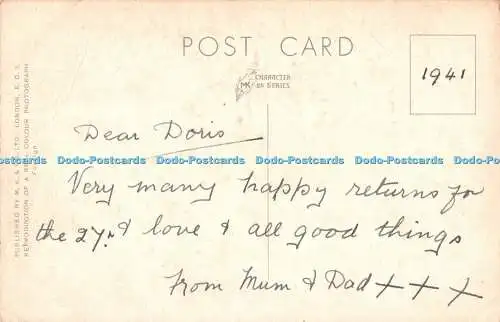 POST CARD
MK CHARACTER
UN SERIES
1941
PUBLISHED BY M. K. & LTD. LONDON, E.C.
REPRODUCTION OF A REAL COLOUR PHOTOGRAPH
Dear Doris
Dodo-Postcards Dodo-Postcards Dodo-Postcards Dodo-Postcards Dodo-Postcards
Very many happy returns for
the 27nd & love & all good things
from Mum & Dad + + +